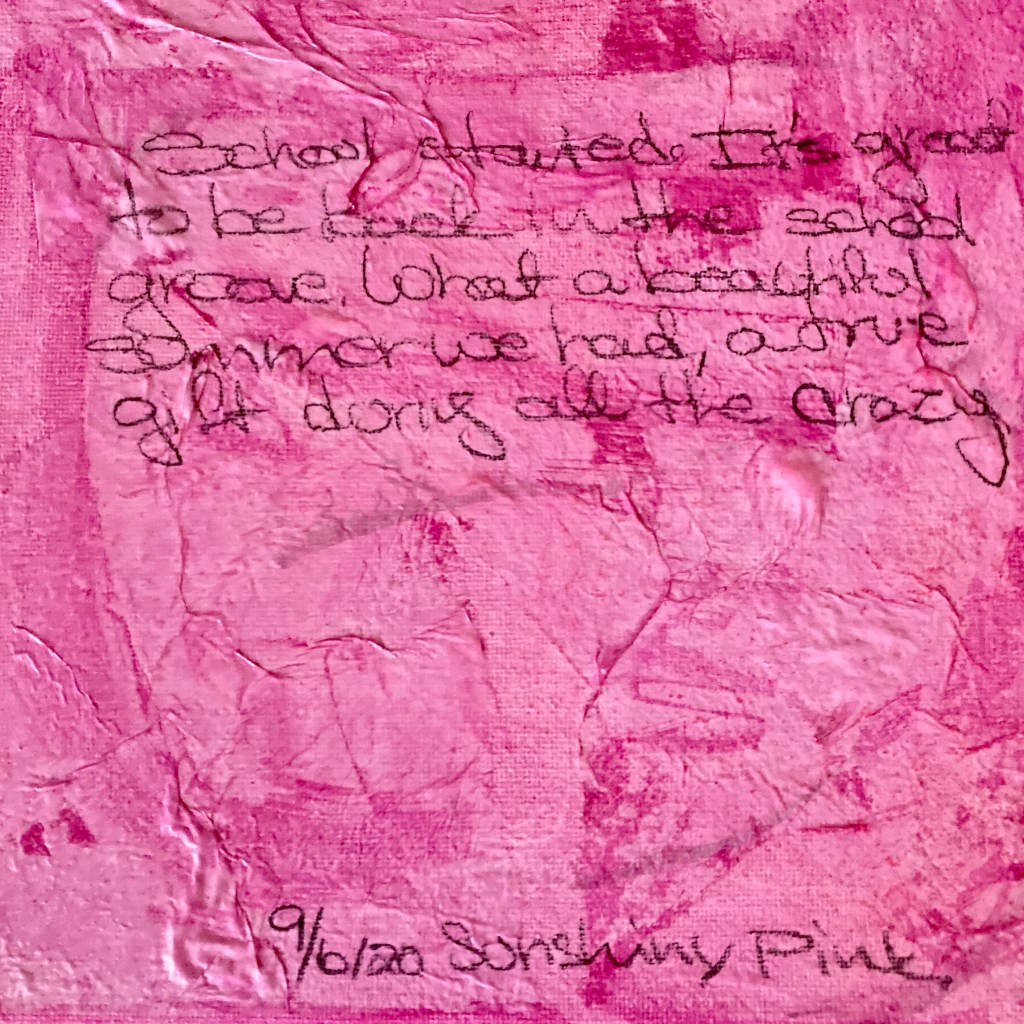 School started. It's great
to be back in the school
groove. What a beautiful
summer we had, a true
gift during all the crazy
9/6/20 Sunshiny Pink.